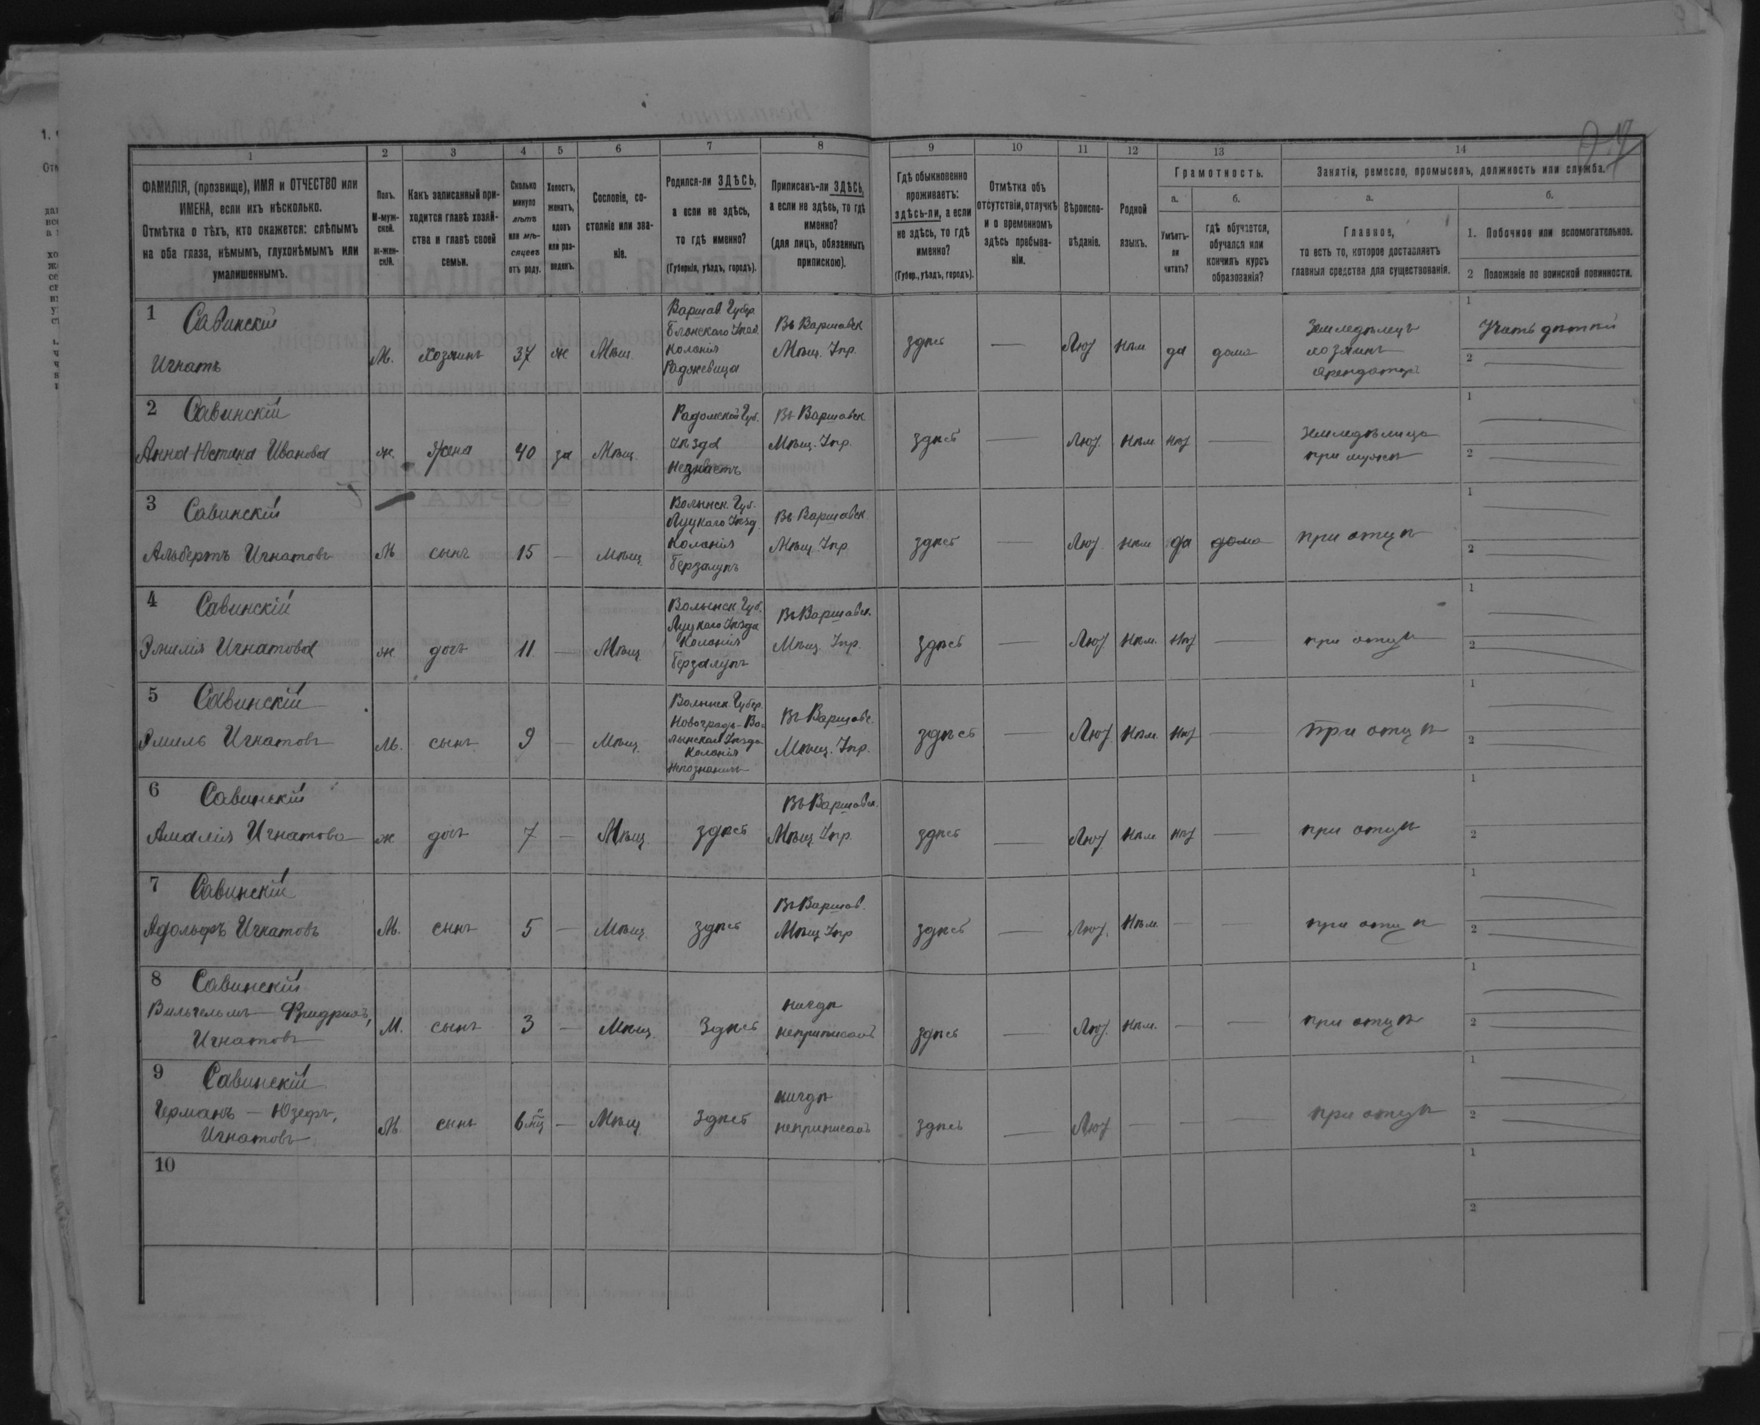 1 2 3 4 5 6 7 8 9 10 11 12 13 14
ФАМИЛІЯ, (прозвище), ИМЯ и ОТЧЕСТВО или
ИМЕНА, если ихъ нѣсколько.
Отмѣтка о тѣхъ, кто окажется: слѣпымъ
на оба глаза, нѣмымъ, глухонѣмымъ или
умалишеннымъ.
Полъ.
М-муж-
ской.
ж-жен-
скій.
Какъ записанный при-
ходится главѣ хозяй-
ства и главѣ своей
семьи.
Сколько
минуло
лѣтъ
или мѣ-
сяцевъ
отъ роду.
Холостъ,
женатъ,
вдовъ
или раз-
веденъ.
Сословіе, со-
стояніе или зва-
ніе.
Родился-ли ЗДѢСЬ,
а если не здѣсь,
то гдѣ именно?
(Губернія, уѣздъ, городъ).
Приписанъ-ли ЗДѢСЬ,
а если не здѣсь, то гдѣ
именно?
(для лицъ, обязанныхъ
припискою).
Гдѣ обыкновенно
проживаетъ:
здѣсь-ли, а если
не здѣсь, то гдѣ
именно?
(Губер., уѣздъ, городъ).
Отмѣтка объ
отсутствіи, отлучкѣ
и о временномъ
здѣсь пребыва-
ніи.
Вѣроиспо-
вѣданіе.
Родной
языкъ.
Грамотность.
а.
Умѣетъ-
ли
читать?
б.
гдѣ обучается,
обучался или
кончилъ курсъ
образованія?
Занятіе, ремесло, промыселъ, должность или служба.
а.
Главное,
то есть то, которое доставляетъ
главныя средства для существованія.
б.
1. Побочное или вспомогательное.
2 Положеніе по воинской повинности.
1 Савинскій
Игнатъ
М. Хозяинъ 37 ж Мѣщ.
Варшав Губер
Блонскаго Уѣзд.
Колонія
Въ Варшавск
Мѣщ. Упр.
здѣсь — Лют нѣм да дома
Земледѣлецъ
хозяинъ
арендаторъ
1 Учитъ дѣтей
2 —
2 Савинскій
Анна-Юстина Иванова
ж. Жена 40 за Мѣщ.
Радомской Губ.
Уѣзда
незнаетъ
Въ Варшавск
Мѣщ. Упр.
здѣсь — Лют нѣм нѣт —
при мужѣ
1 —
2 —
3 Савинскій
Альбертъ Игнатовъ
М сынъ 15 — мѣщ.
Волынск. Губ.
Луцкаго Уѣзд.
Колонія
Берзалупъ
Въ Варшавск.
Мѣщ. Упр.
здѣсь — Лют нѣм да дома при отцѣ
1 —
2 —
4 Савинскій
Эмилія Игнатова
ж. дочь 11 — Мѣщ
Волынск. Губ.
Луцкаго Уѣзда
Колонія
Берзалупъ
Въ Варшавск.
Мѣщ. Упр.
здѣсь — Лют нѣм. нѣт — при отцѣ
1 —
2 —
5 Савинскій
Эмиль Игнатовъ
М. сынъ 9 — Мѣщ.
Волынск. Губер.
Новоградъ-Во-
лынскаго Уѣзда
Колонія
Въ Варшавс.
Мѣщ. Упр.
здѣсь — Лют. нѣм. нѣт — при отцѣ
1 —
2 —
6 Савинскій
Амалія Игнатова
ж дочь 7 — Мѣщ. здѣсь
Въ Варшавск.
Мѣщ Упр.
здѣсь — Лют нѣм нѣт — при отцѣ
1
2
7 Савинскій
Адольфъ Игнатовъ
М. сынъ 5 — Мѣщ. здѣсь
Въ Варшав.
Мѣщ Упр
здѣсь — Лют. нѣм — — при отцѣ
1 —
2 —
8 Савинскій
Вильгельмъ — Фридрихъ,
Игнатовъ
М. сынъ 3 — Мѣщ. Здѣсь
нигдѣ
неприписанъ
здѣсь — Лют. нѣм. — — при отцѣ
1 —
2 —
9 Савинскій
Германъ — Юзефъ,
Игнатовъ
М. сынъ 6 мц — Мѣщ Здѣсь
нигдѣ
неприписанъ
здѣсь — Лют — — — при отцѣ
1 —
2 —
10
1
2